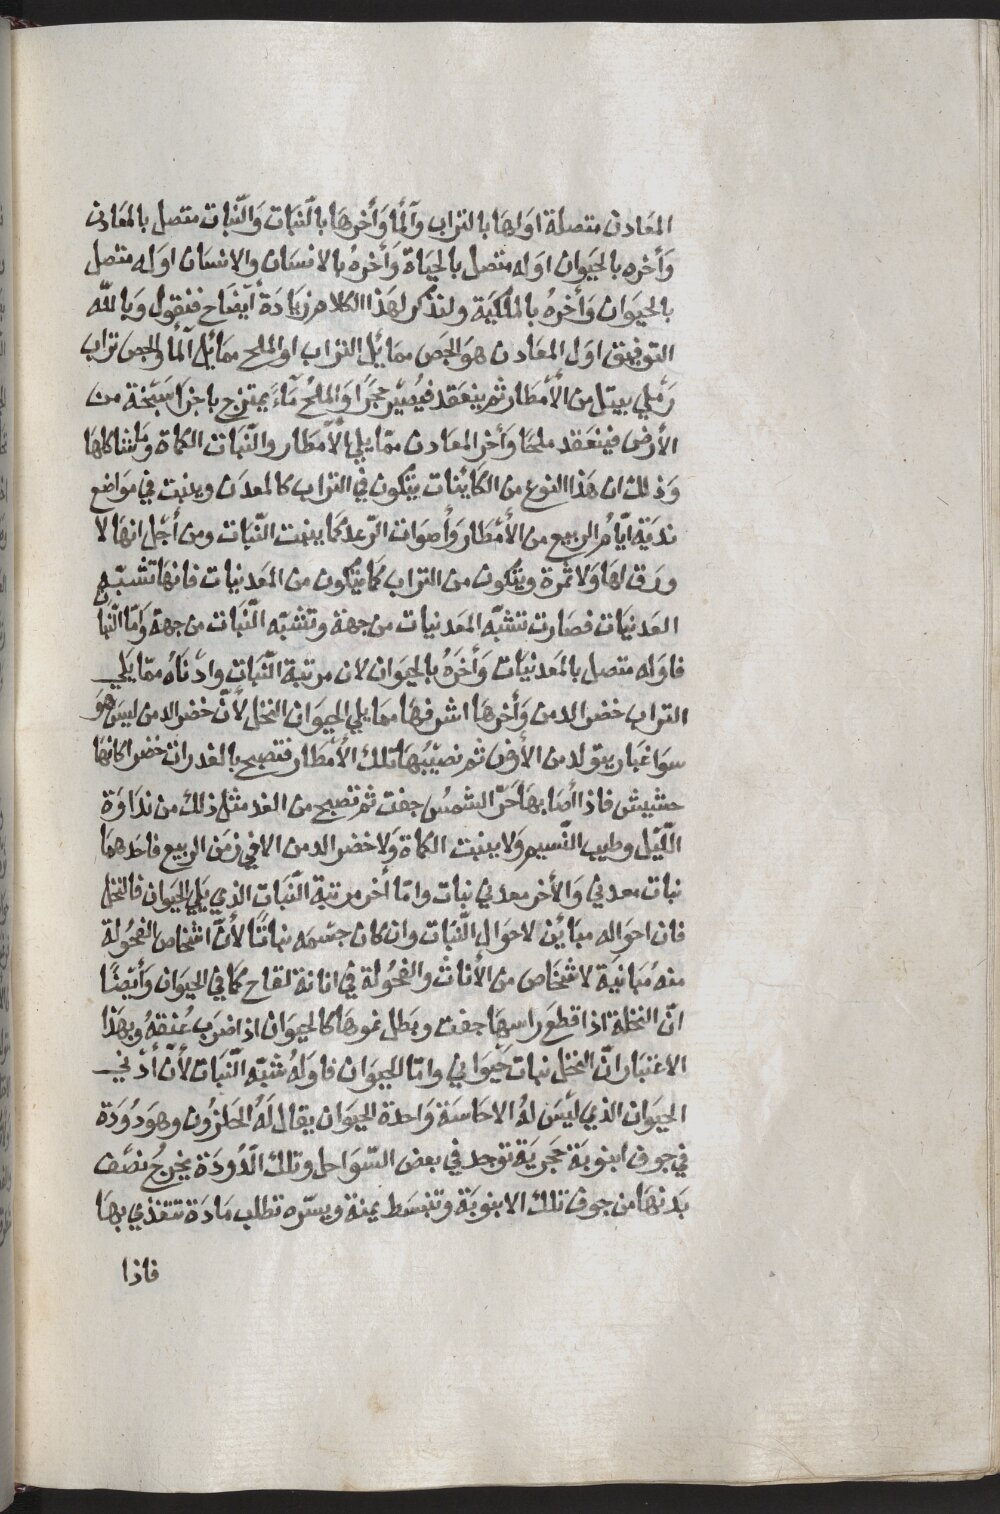 المعَادن متصلة اوّلهَا بالتراب وَآلمَا وَأخرهَا بالنّبَات وَالنّبات متصل بالمعَادن
وَأخره بالحيَوان اوله متصل بالحيَاة وَأخرهُ بالانسَان والانسَان اوله متصل
بالحيوَان وَأخرهُ بالمَلكيَة ولنذكر لهَذا الكلام زيَادَة أيضَاح فنقول وَبالله
التوفيق اوَل المعَادن هوَ الجَص ممَا يَلي التراب او الملح ممَا يَلي آلمَا والجص تراب
رَملي يبتل من الأمطار ثم ينعَقد فيُصيّر حجَرًا وَالملحُ مَآء يمتزج باجزآ سَبخة من
الأرض فينعَقد ملحَا وَأخر المعَادن ممّا يلي الأمطَار والنّبَات الكماة وَمَا شاكلهَا
وَذلك ان هَذا النوع من الكَاينَات يتكون في التراب كالمعدَن وينبت في موَاضع
نديَة ايّام الربيع من الأمطَار وَأصوَات الرّعد كمَا ينبت النّبَات ومن أجل انهَا لا
ورَق لهَا وَلا ثمرة ويتكون من التراب كمَا يتكون من المعَدنيات فانهَا تشبّه
العَدنيَات فصَارت تشبّه المعَدنيات من جهة وتشبّه النّبَات من جهة وَامّا النّبات
فاوَله متصل بالمعَدنيَات وَأخَرهُ بالحيوَان لان مرتبة النّبَات وادنَاهُ ممّا يَلي
التراب خضر الدمن وَأخرهَا اشرفهَا ممَا يلي الحيوَان النخل لأن خضر الدمن ليسَ هوَ
سوَا غبَار يتولد من الأرض ثم تصيّبُهَا تلك الأمطَار فتصبح بالغدرات خضرا كانهَا
حشيش فاذا أصَابهَا حَرّ الشمسُ جفت ثم تصبح من الغد مثل ذلك من ندَاوَة
الليّل وطيب النّسيم وَلا ينبت الكماة وَلا خضر الدمن الا في زمَن الربيع فاحَدهما
نبات معدني وَالأخر معدني نبات وامّا أخر مرتبة النّبَات الذي يَلي الحيوَان فالنخل
فان احوَاله مبَاين لاحوَال النّبَات وان كان جسَمه نباتًا لأن اشخاص الفحُولة
منه مُبَانيَة لاشخَاص من الأناث والفحُولة في اناثة لقاح كمَا في الحيوَان وَأيضًا
انّ النخلة اذا قطعَ رَاسهَا جفت وبَطل نموهَا كالحيوَان اذا ضرَب عُنقهُ وبهذا
الاعتبَار انّ النخل نبات حَيوَاني وامّا الحيوَان فاوَلهُ شبّه النّبَات لأن أدْني
الحيوَان الذي ليَسَ لهُ الاحاسَة وَاحدة الحيوَان يقال لهُ الحلزُون وهوَ دُودَة
في جوف انبوبَة حَجريَة توجد في بعض السّوَاحل وتلك الدُودَة يخرجُ نصَف
بدَنهَا من جوف تلك الانبوبَة وتنبسَط يمنة ويسَره تطلب مَادَة تتغذي بهَا
فاذا